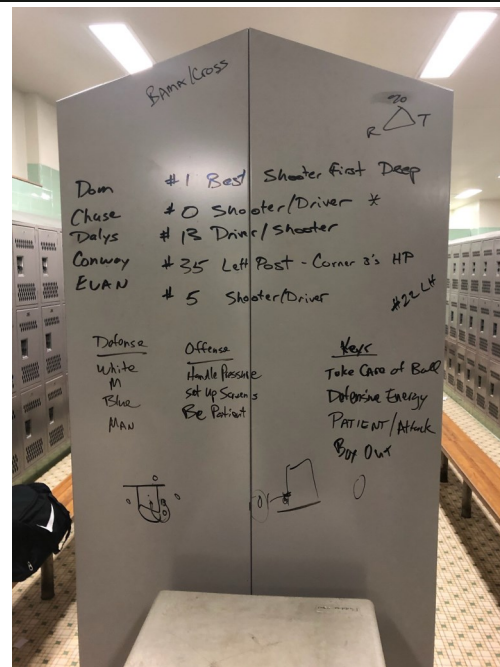 BAMA/CROSS
70
R T
Dom #1 Best Shooter first Deep
Chase #0 Shooter/Driver *
Dalys #13 Driver/Shooter
Conway #35 Left Post - Corner 3's HP
EVAN #5 Shooter/Driver
#22 LH
Defense
White
M
Blue
MAN
Offense
Handle Pressure
Set Up Screens
Be Patient
Keys
Take Care of Ball
Defensive Energy
PATIENT/Attack
Box Out